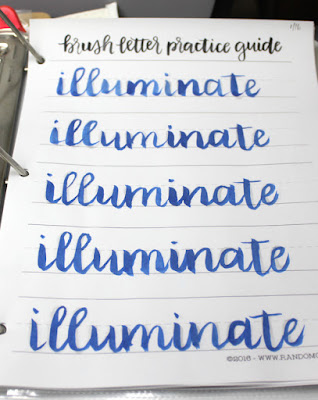 brush letter practice guide
illuminate
illuminate
illuminate
illuminate
illuminate
©2016 - WWW.RANDOMO